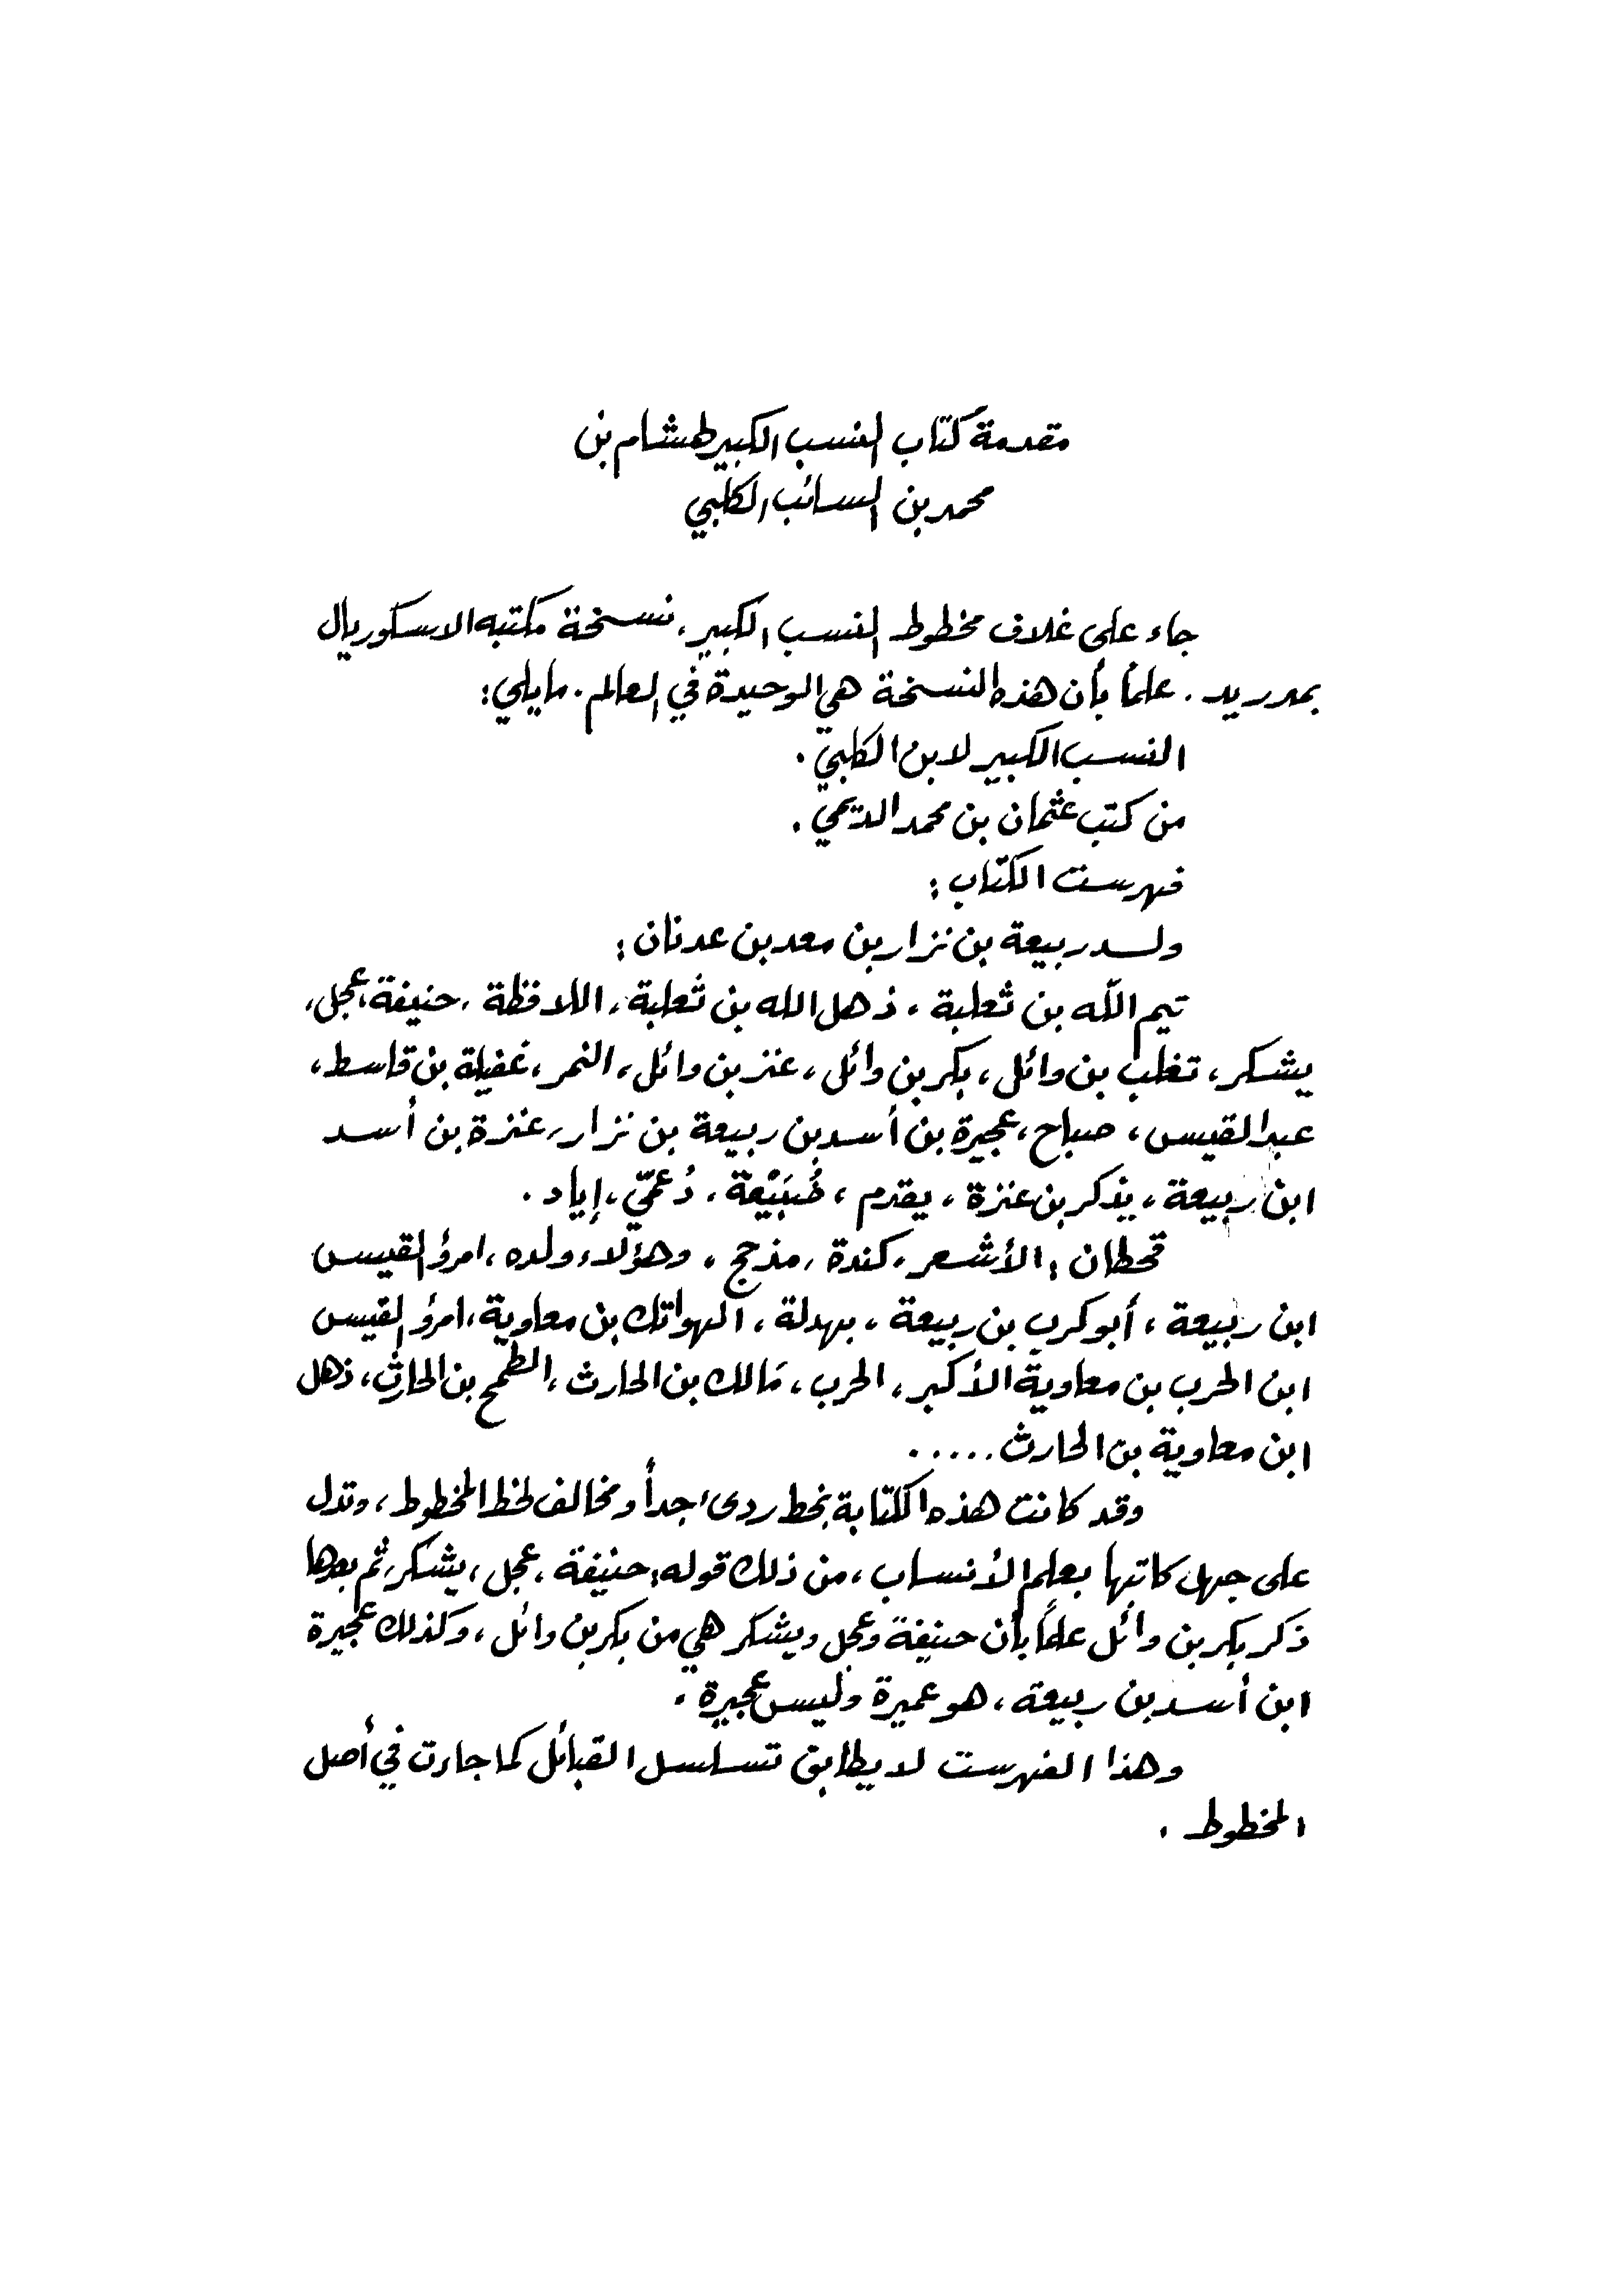 مقدمة كتاب النسب الكبير لهشام بن
محمد بن السائب الكلبي
جاء على غلاف مخطوط النسب الكبير، نسخة مكتبه الاسكوريال
بمدريد . علماً بأن هذه النسخة هي الوحيدة في العالم . مايلي:
النسب الكبير لابن الكلبي .
من كتب عثمان بن محمد الديمي .
فهرست الكتاب :
ولد ربيعة بن نزار بن معد بن عدنان :
تيم الله بن ثعلبة ، ذهل الله بن ثعلبة، اللافظة ، حنيفة، عجل،
يشكر، تغلب بن وائل ، بكر بن وائل ، عنز بن وائل، النمر، غفيلة بن قاسط،
عبد القيس ، صباح، عجيرة بن أسد بن ربيعة بن نزار، عنزة بن أسد
ابن ربيعة ، يذكر بن عنزة ، يقدم ، ضُبَيْعة ، دُعمّي ، إياد .
قحطان : الأشعر، كندة ، مذحج ، وهؤلاء ولده ، امرؤ القيس
ابن ربيعة ، أبو كرب بن ربيعة ، بهدلة ، الهواتك بن معاوية، امرؤ القيس
ابن الحرب بن معاوية الأكبر ، الحرب ، مالك بن الحارث ، الطمح بن الحارث، ذهل
ابن معاوية بن الحارث .....
وقد كانت هذه الكتابة بخط ردىء جداً ومخالف لخط المخطوط ، وتدل
على جهل كاتبها بعلم الأنساب ، من ذلك قوله: حنيفة ، عجل ، يشكر، ثم بعدها
ذكر بكر بن وائل علماً بأن حنيفة وعجل ويشكر هي من بكر بن وائل ، وكذلك عجيرة
ابن أسد بن ربيعة ، هو عميرة وليس عجيرة .
وهذا الفهرست لا يطابق تسلسل القبائل كما جاءت في أصل
المخطوط .